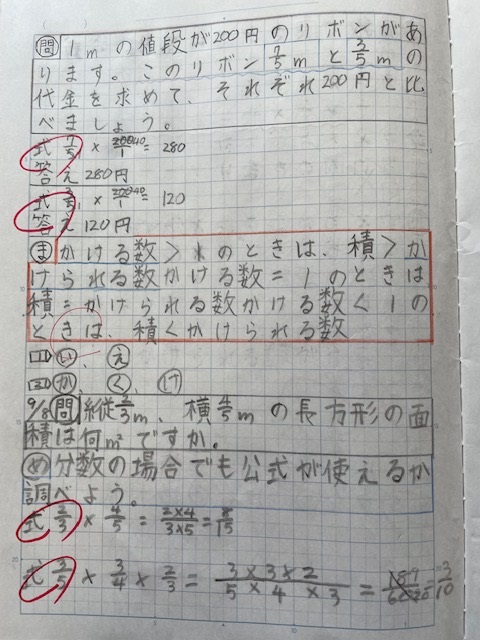 問 1mの値段が200円のリボンがあ
ります。このリボン 7/5 m と 3/5 m の
代金を求めて、それぞれ200円と比
べましょう。
式 7/5 × 200 40/1 = 280
答え 280円
式 3/5 × 200 40/1 = 120
答え 120円
ま かける数>1のときは、積>か
けられる数かける数=1のときは
積=かけられる数かける数<1の
ときは、積<かけられる数
1 い、え
2 か、く、け
9/8 問 縦 2/3 m、横 4/5 m の長方形の面
積は何m²ですか。
め 分数の場合でも公式が使えるか
調べよう。
式 2/3 × 4/5 = 2×4/3×5 = 8/15
式 3/5 × 3/4 × 2/3 = 3×3×2/5×4×3 = = 3/10